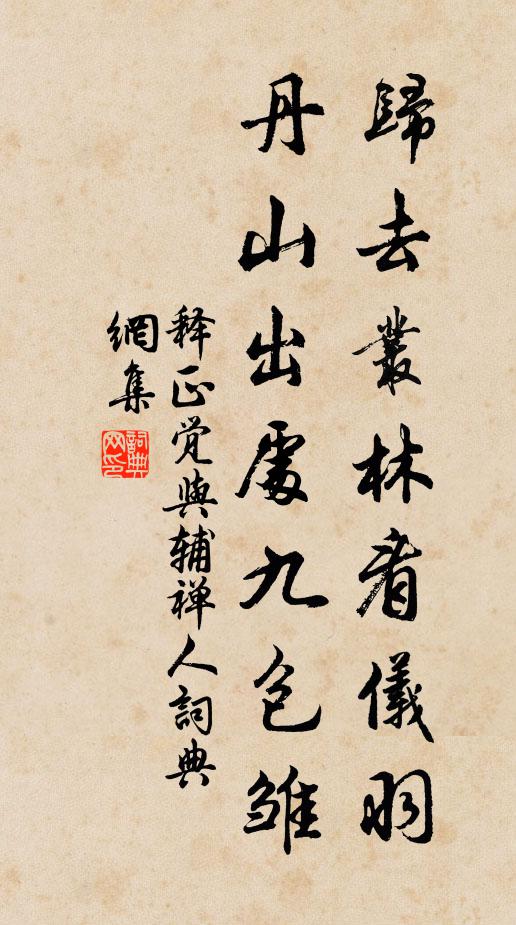 歸去叢林看儀羽
丹山出處九包雏
释正觉與辅禅人詞典
網集
詞典网印